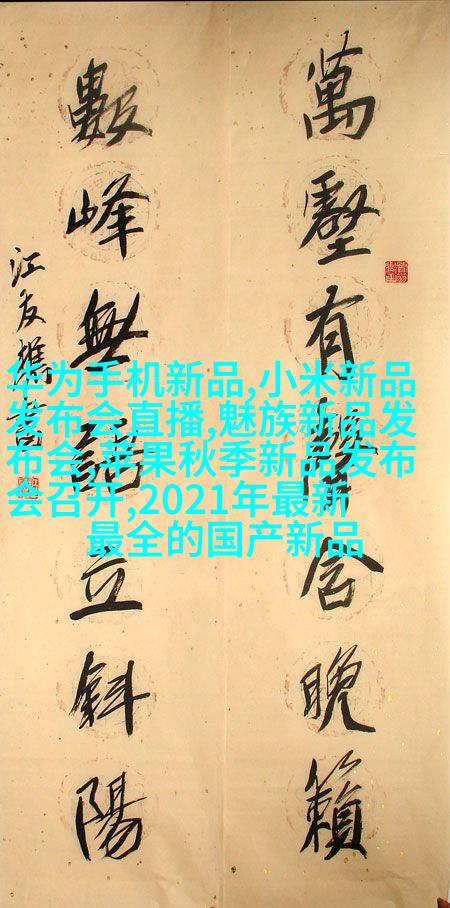 萬壑有聲含晚籟
數峰無語立斜陽
江友樵書
华为手机新品,小米新品
发布会直播,魅族新品发
布会,苹果秋季新品发布
会召开,2021年最新
最全的国产新品